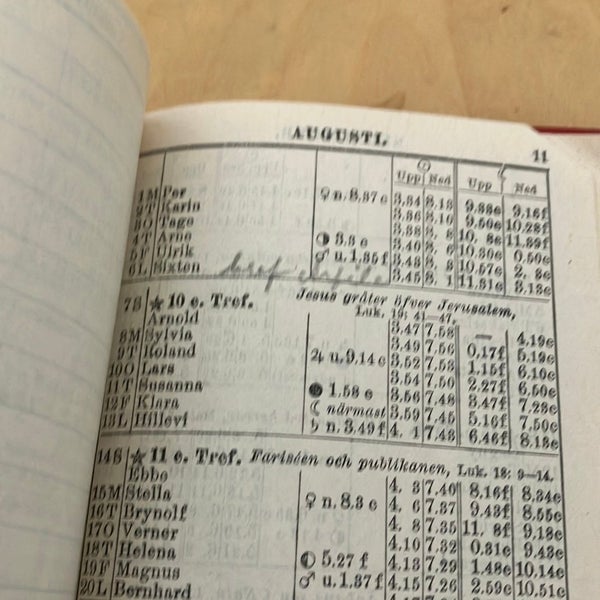 AUGUSTI.
11
Upp Ned Upp Ned
1 M Per ♀ n. 8,37 e 3,34 8,13 9,38e 9,16f
2 T Karin 3,36 8,10 9,50e 10,28f
3 O Tage 3,38 8, 8 10, 8e 11,39f
4 T Arne ◑ 3.3 e 3,40 8, 6 10,30e 0,50e
5 F Ulrik ♂ u. 1,35 f 3,43 8, 3 10,57e 2, 8e
6 L Sixten 3,45 8, 1 11,31e 3,13e
7 S ★ 10 e. Tref. Jesus gråter öfver Jerusalem,
Luk. 19: 41—47.
Arnold 3,47 7,58 — 4,19e
8 M Sylvia 3,49 7,56 0,17f 5,19e
9 T Roland ♃ u. 9,14 e 3,52 7,53 1,15f 6,10e
10 O Lars 3,54 7,50 2,27f 6,50e
11 T Susanna ● 1.58 e 3,56 7,48 3,47f 7,23e
12 F Klara ☾ närmast 3,59 7,45 5,16f 7,50e
13 L Hillevi ♄ n. 3,49 f 4, 1 7,43 6,46f 8,13e
14 S ★ 11 e. Tref. Fariséen och publikanen, Luk. 18: 9—14.
Ebbe 4, 3 7,40 8,16f 8,34e
15 M Stella ♀ n. 8,3 e 4, 6 7,37 9,43f 8,55e
16 T Brynolf 4, 8 7,35 11, 8f 9,18e
17 O Verner 4,10 7,32 0,31e 9,43e
18 T Helena ◐ 5.27 f 4,13 7,29 1,48e 10,14e
19 F Magnus ♂ u. 1,37 f 4,15 7,26 2,59e 10,51e
20 L Bernhard